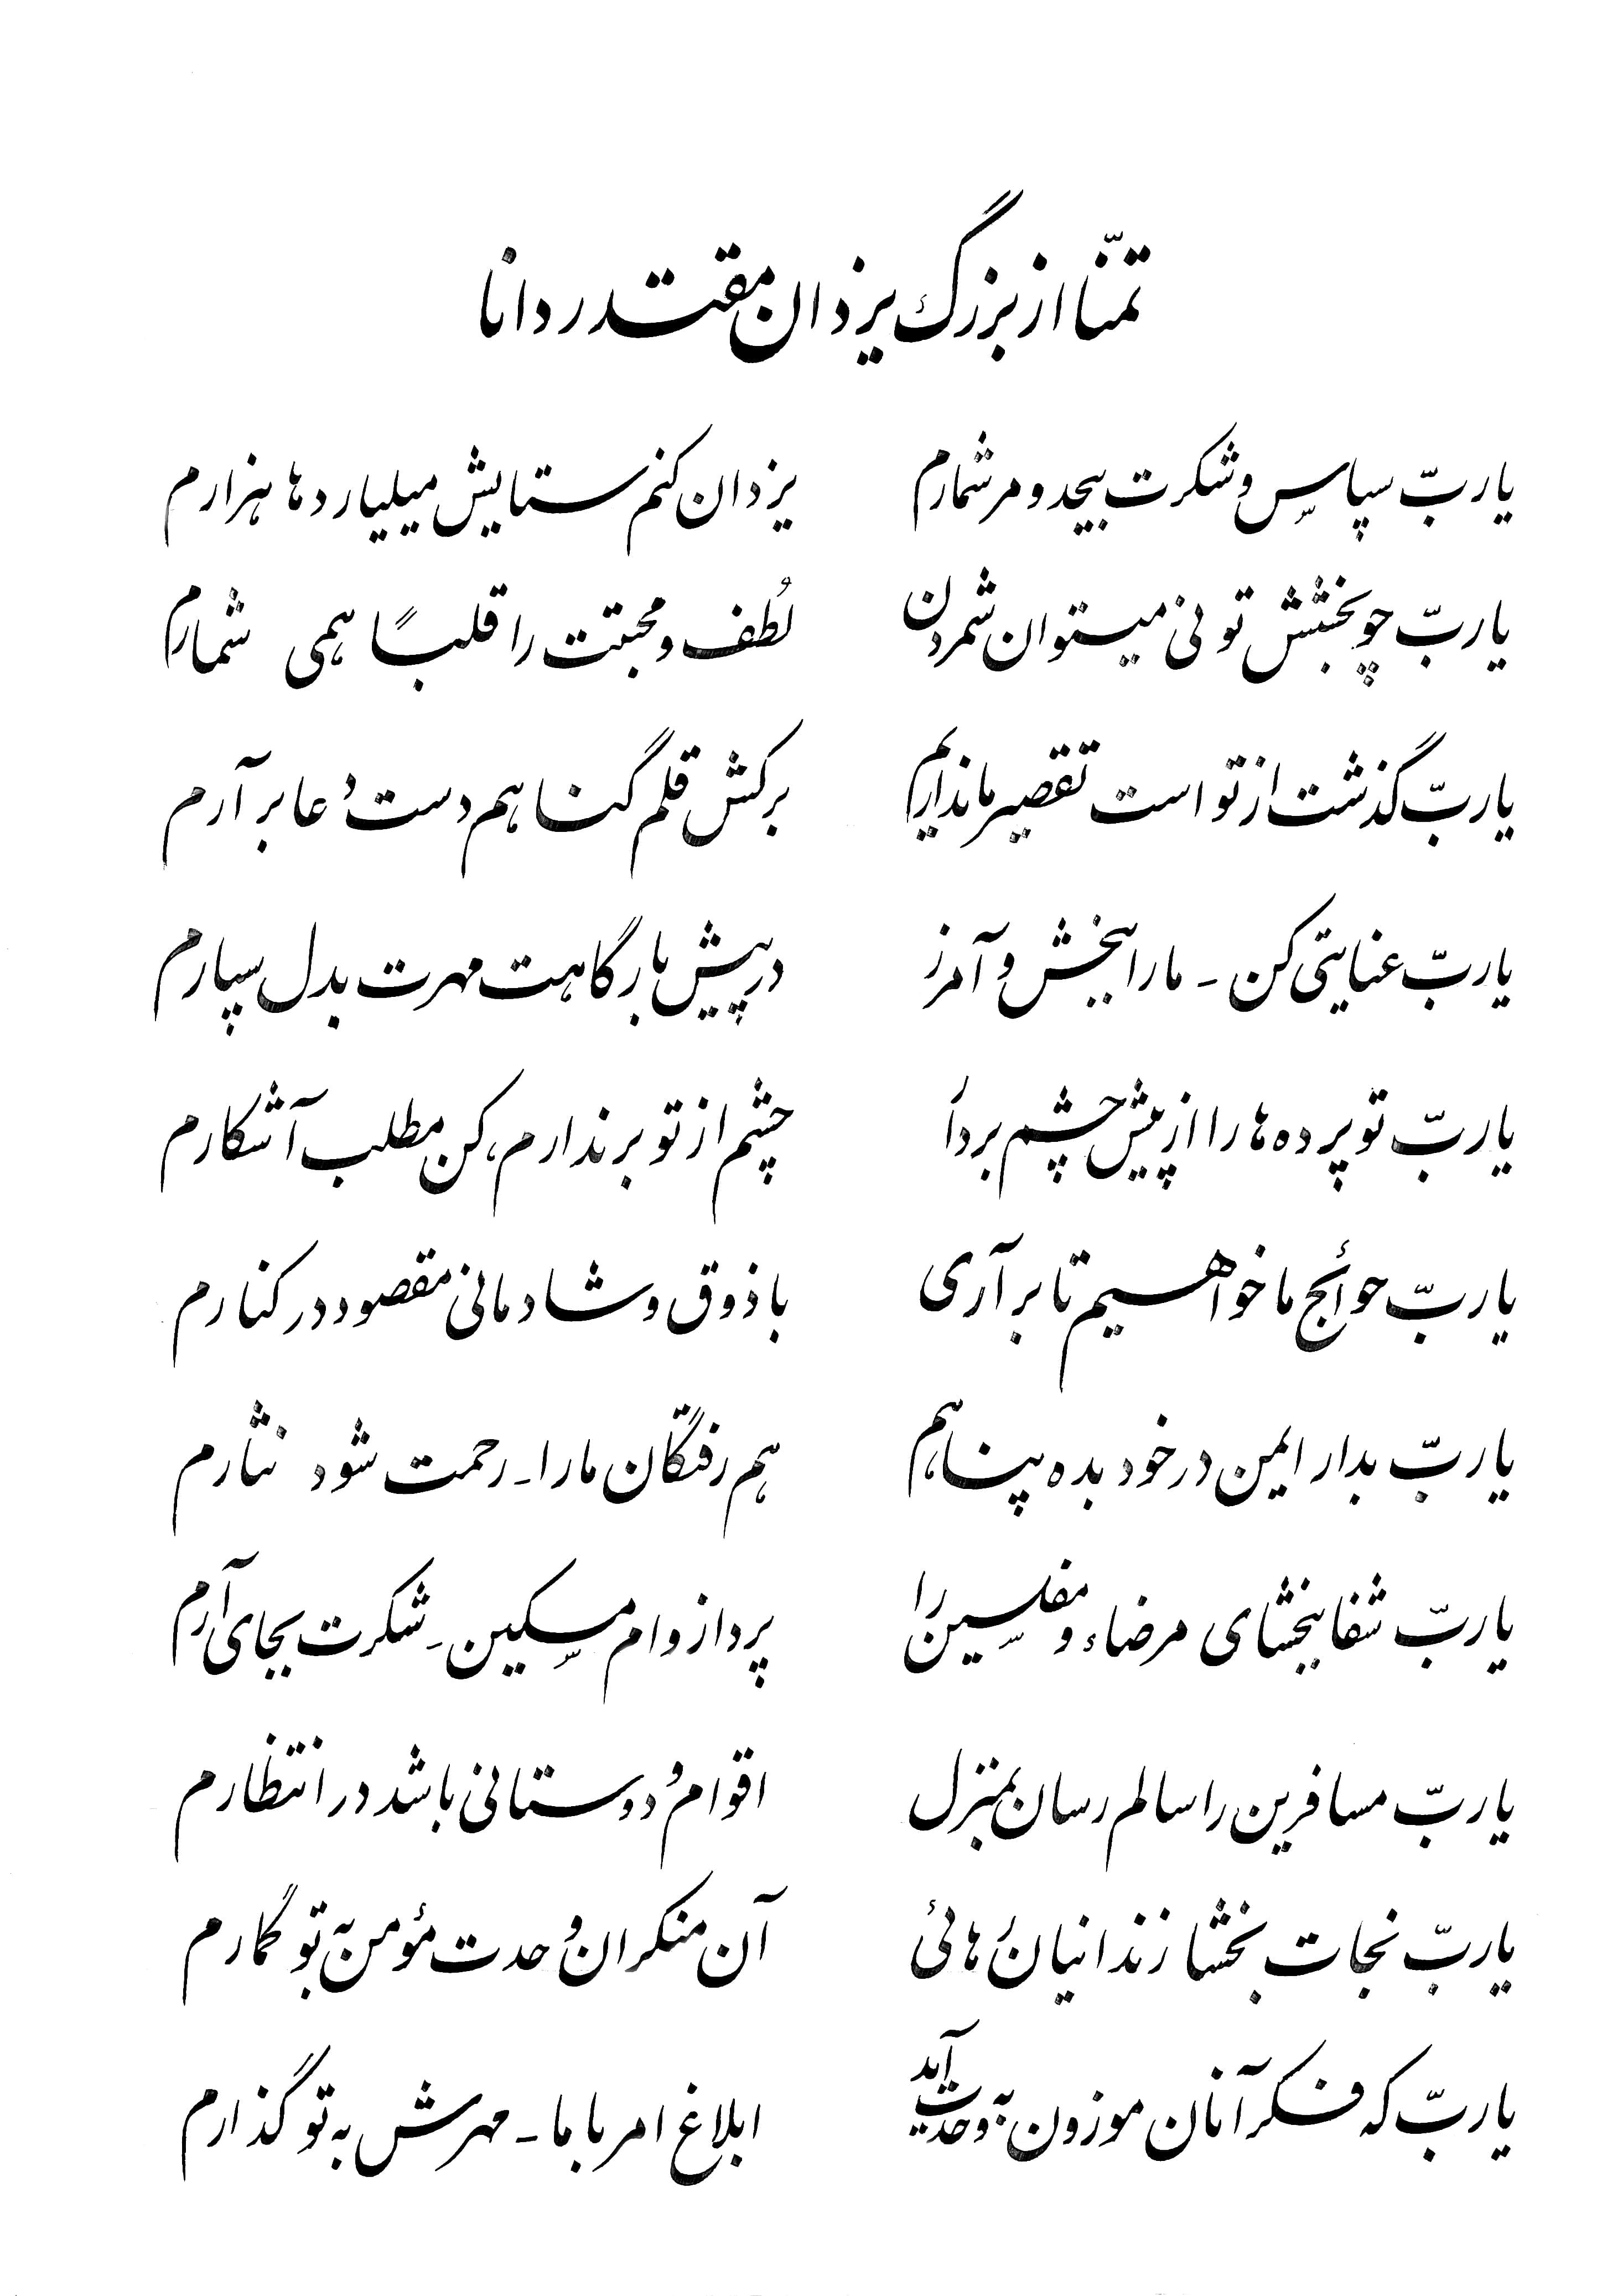 تمنّا از بزرگ یزدان مقتدر دانا
یا ربّ سپاس و شکرت بیحد و مر شمارم یزدان کنم ستایش میلیاردها هزارم
یا ربّ چو بخشش تو نی میتوان شمردن لُطف و محبتت را قلباً همی شمارم
یا ربّ گذشت از تو است تقصیر ما نداریم برکش قلم گناهم دست دعا بر آرم
یا ربّ عنایتی کن - ما را ببخش و آمرز در پیش بارگاهت مهرت بدل سپارم
یا ربّ تو پرده ها را از پیش چشم بردا چشم از تو بر ندارم، کن مطلب آشکارم
یا ربّ حوائج ما خواهیم تا بر آری با ذوق و شادمانی مقصود در کنارم
یا ربّ بدار ایمن در خود بده پناهم هم رفتگان ما را - رحمت شود نثارم
یا ربّ شفا ببخشای مرضاء و مفلسین را پرداز وام مسکین - شکرت بجای آرم
یا ربّ مسافرین را سالم رسان بمنزل اقوام و دوستانی باشد در انتظارم
یا ربّ نجات بخشا زندانیان رهائی آن منکران وحدت مؤمن به تو گمارم
یا ربّ که فکر آنان موزون به وحدت آید ابلاغ امر با ما - مهرش به تو گذارم